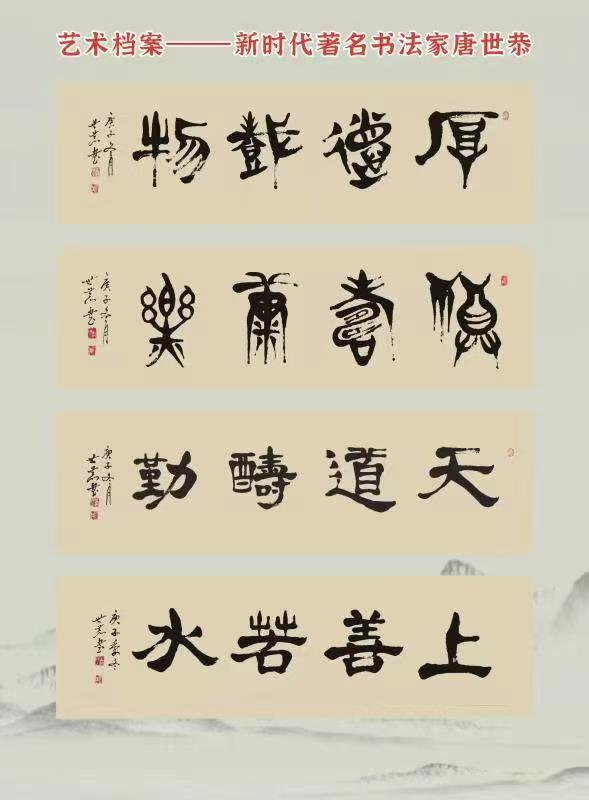 艺术档案——新时代著名书法家唐世恭
厚德載物
庚子冬月
世恭书
壽康樂
庚子冬月
世恭书
天道醻勤
庚子冬月
世恭书
上善若水
庚子季冬
世恭书